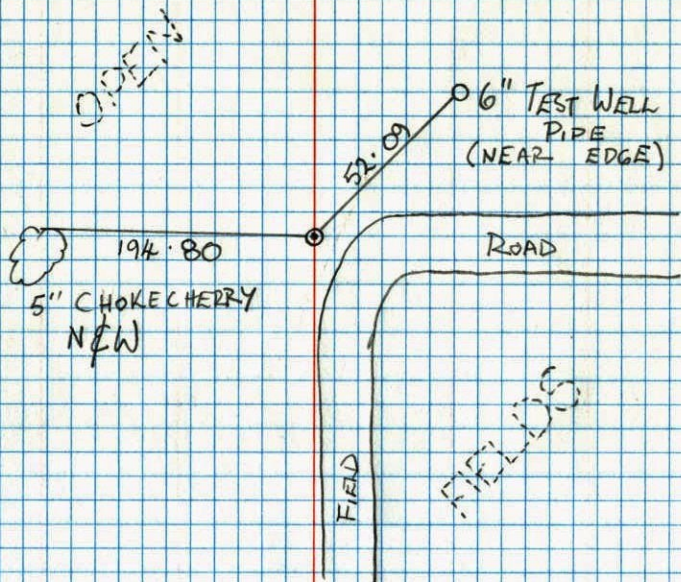 OPEN
6" TEST WELL
PIPE
(NEAR EDGE)
52.09
194.80
ROAD
5" CHOKECHERRY
N₵W
FIELDS
FIELD